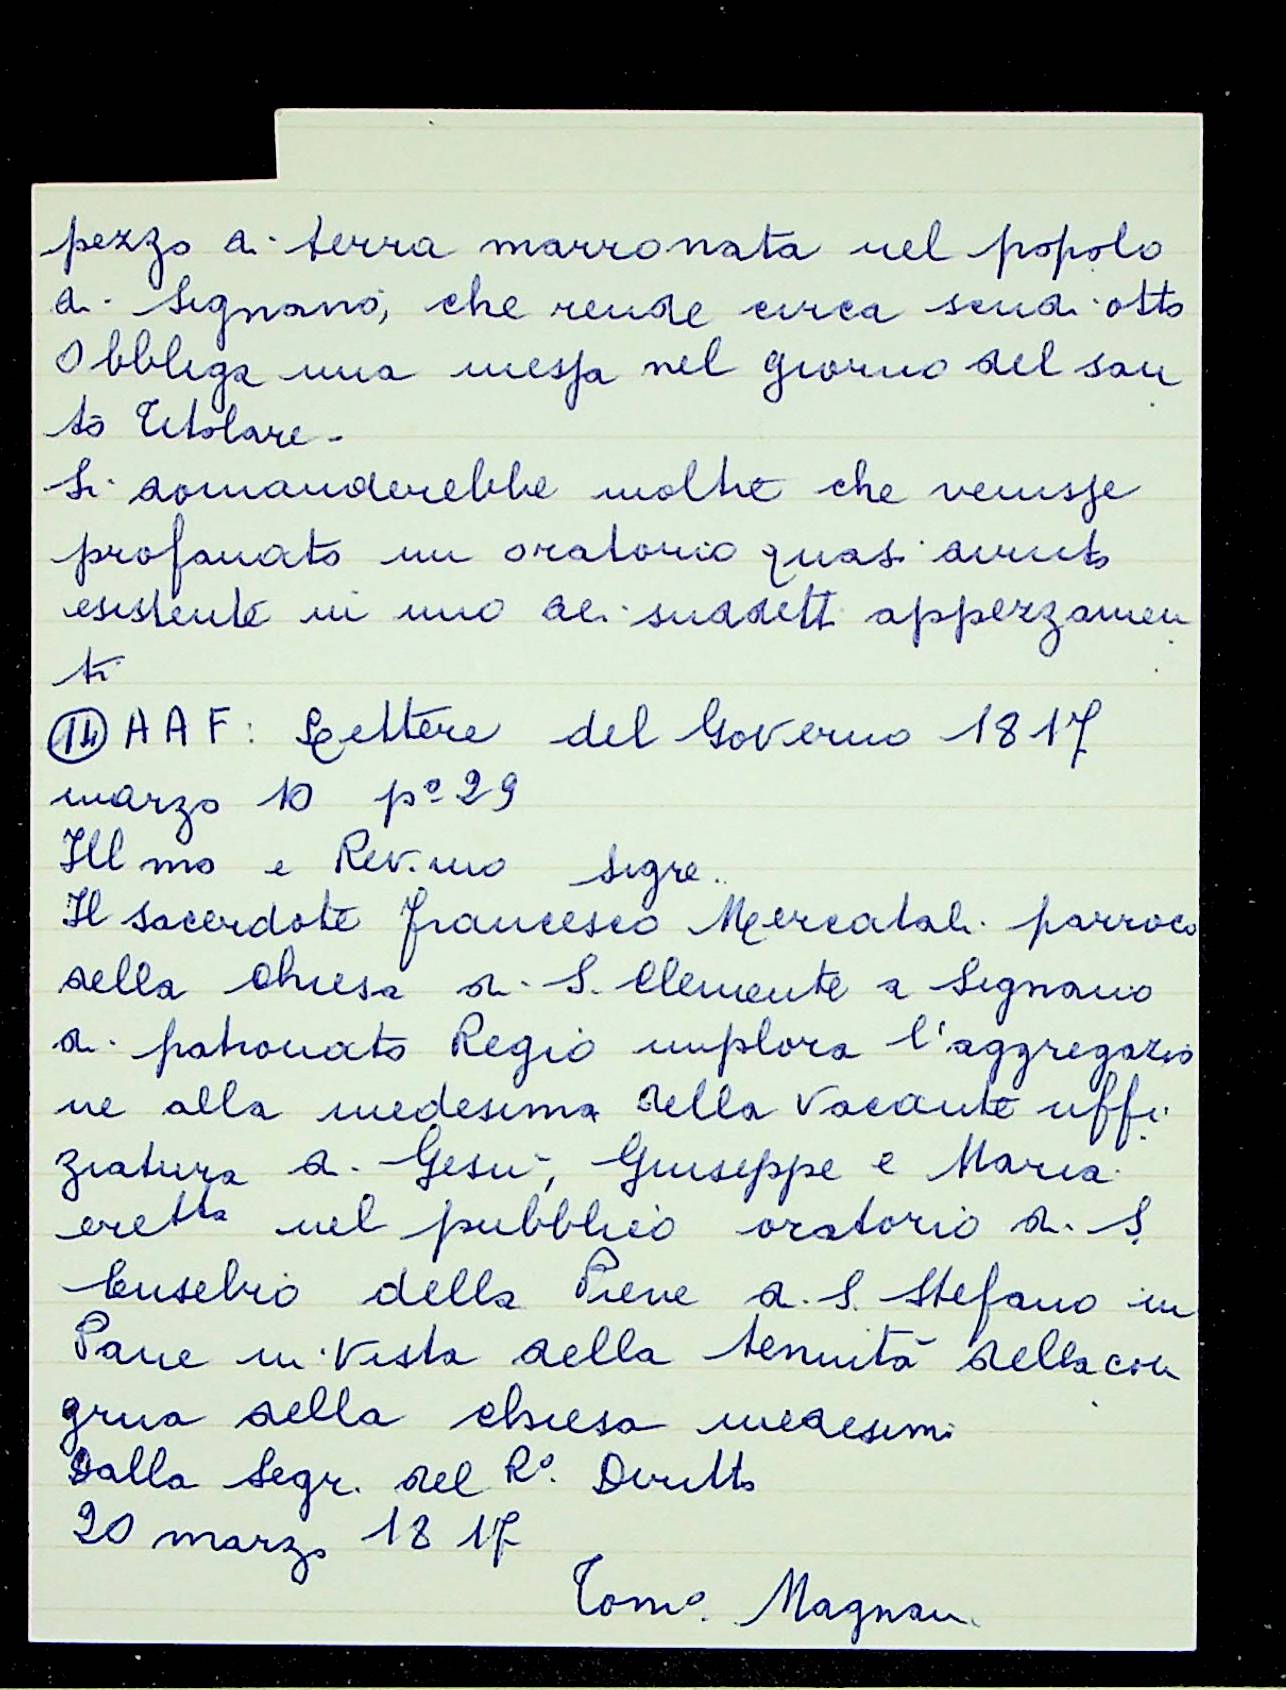 pezzo di terra marronata nel popolo
di Signano, che rende circa scudi otto
Obbliga una messa nel giorno del san
to Titolare -
Si domanderebbe inoltre che venisse
profanato un oratorio quasi diruto
esistente in uno dei suddetti appezzamen
ti
14 AAF: Lettere del Governo 1817
marzo 10 pº 29
Ill mo e Rev.mo Sigre..
Il sacerdote Francesco Mercatali parroco
della Chiesa di S. Clemente a Signano
di patronato Regio implora l'aggregazio
ne alla medesima della vacante uffi
ziatura di Gesù, Giuseppe e Maria
eretta nel pubblico oratorio di S.
Eusebio della Pieve di S. Stefano in
Pane in vista della tenuità della con
grua della chiesa medesimi
Dalla Segr. del Rº. Diritto
20 marzo 1817
Tomº. Magnani